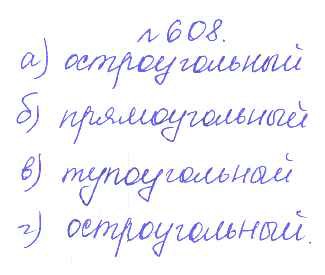 №608.
а) остроугольный
б) прямоугольный
в) тупоугольной
г) остроугольный.